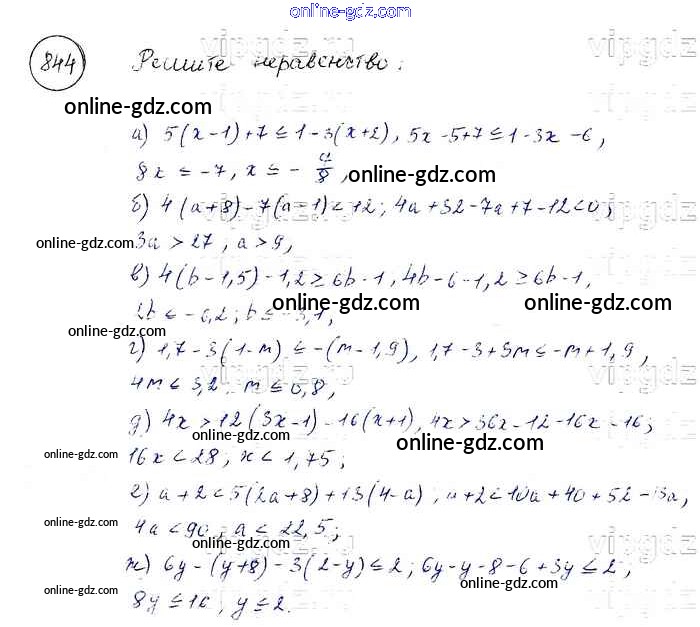 online-gdz.com
844 Решите неравенство:
online-gdz.com
а) 5(x-1)+7≤1-3(x+2), 5x-5+7≤1-3x-6,
8x ≤ -7, x ≤ -7/8,
online-gdz.com
б) 4(a+8)-7(a-1)<12; 4a+32-7a+7-12<0,
online-gdz.com
3a > 27, a > 9,
в) 4(b-1,5)-1,2≥6b-1, 4b-6-1,2≥6b-1,
2b ≤ -6,2; b ≤ -3,1,
online-gdz.com
online-gdz.com
online-gdz.com
г) 1,7-3(1-m) ≤ -(m-1,9), 1,7-3+3m≤-m+1,9,
4m ≤ 3,2 m ≤ 0,8,
д) 4x>12(3x-1)-16(x+1), 4x>36x-12-16x-16;
online-gdz.com
online-gdz.com
online-gdz.com
16x < 28; x < 1,75;
е) a+2<5(2a+8)+13(4-a), a+2<10a+40+52-13a,
online-gdz.com
4a<90, a < 22,5;
online-gdz.com
ж) 6y-(y+8)-3(2-y)≤2; 6y-y-8-6+3y≤2;
online-gdz.com
online-gdz.com
8y≤16, y≤2.